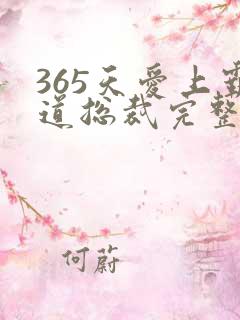 365天爱上霸
道总裁完整
何蔚